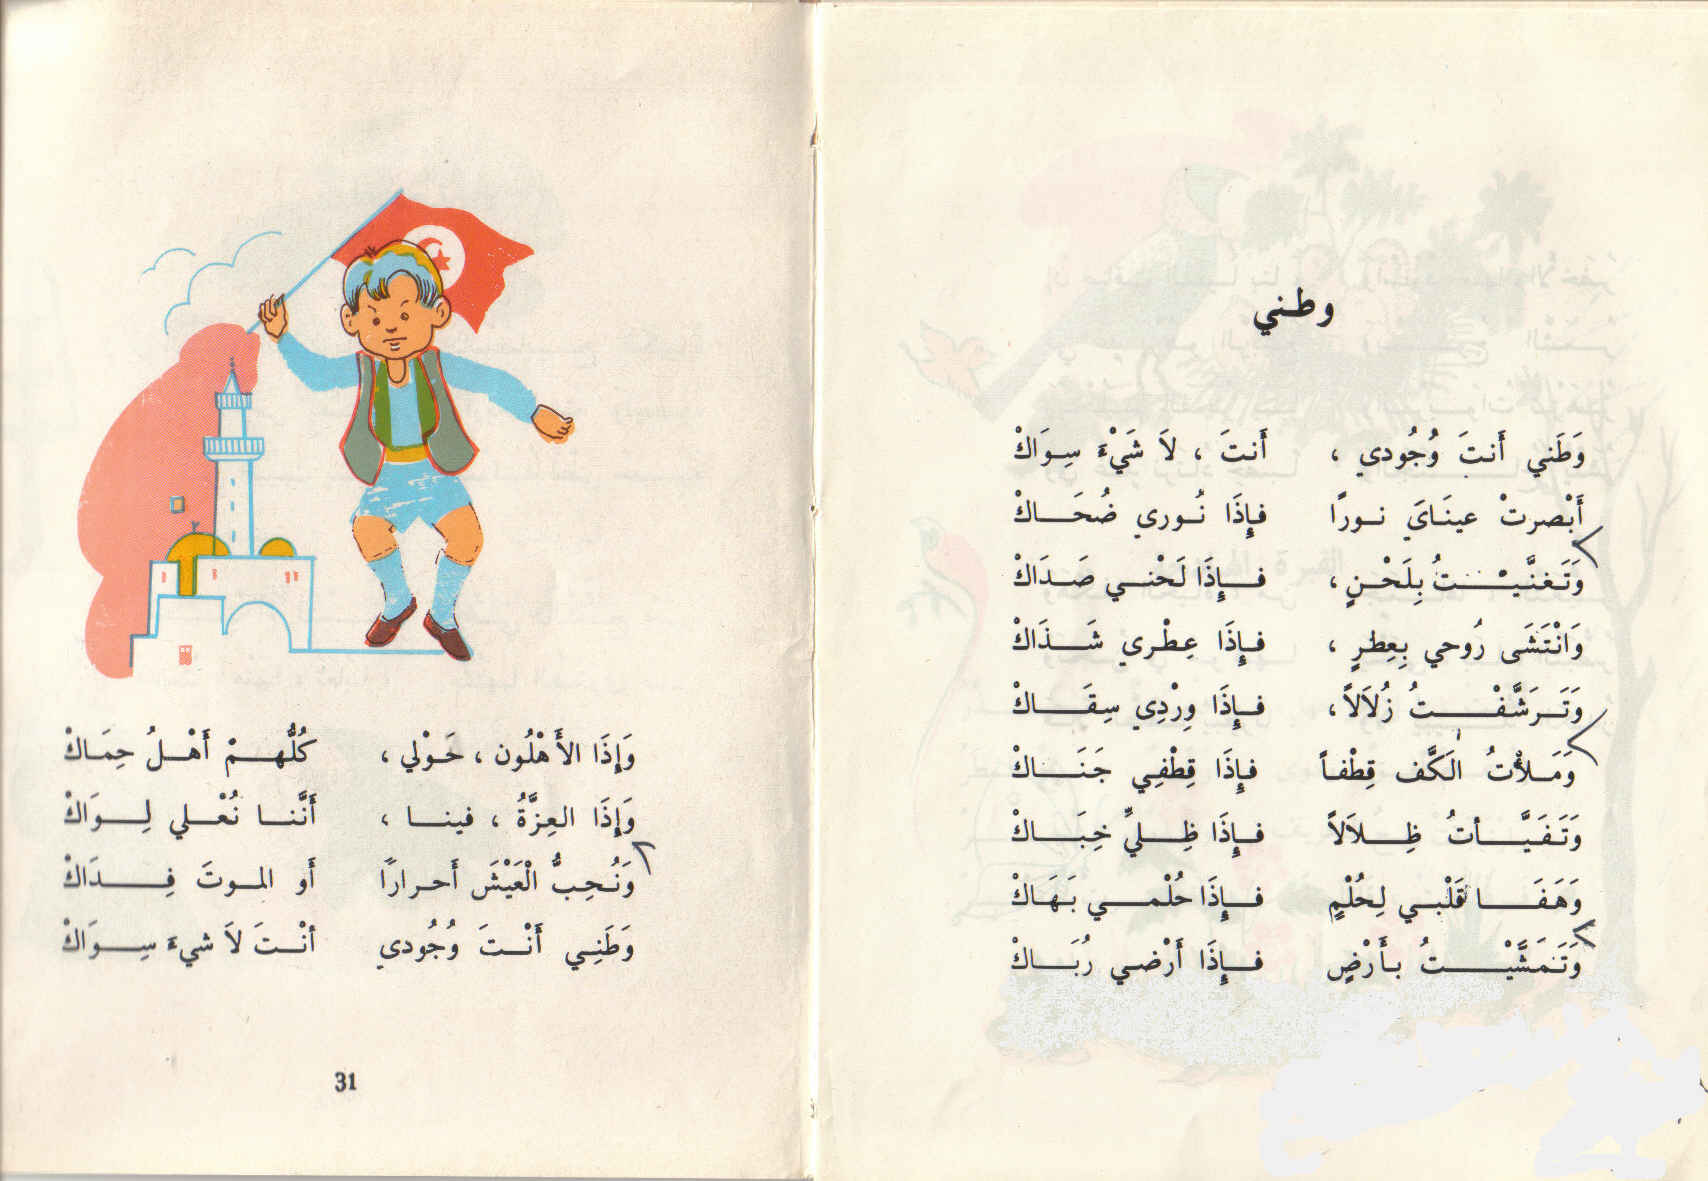 وطـني
وَطَني أَنتَ وُجُودي ، أَنتَ ، لاَ شَيْءَ سِوَاكْ
أَبْصرتْ عينَايَ نـورًا فـإِذَا نُـوري ضُحَـاكْ
وَتَـغنَّيـْـتُ بِلَحْـنٍ ، فـإِذَا لَحْنـي صَـدَاكْ
وَانْتَشَى رُوحي بِعِطرٍ ، فـإِذَا عِطْري شَـذَاكْ
وَتَـرَشَّفْـتُ زُلاَلاً ، فـإِذَا وِرْدِي سِقَـاكْ
وَمَـلأْتُ الَكَّف قِطْفـاً فـإِذَا قِطْفِـي جَنَـاكْ
وَتَـفَيَّـأتُ ظِـلاَلاً فـإِذَا ظِـليِّ خِبَـاكْ
وَهَـفَـا قَلْبـي لِـحُلْمٍ فـإِذَا حُلْمـي بَـهَـاكْ
وَتَـمَشَّيْـتُ بـأَرْضٍ فـإِذَا أَرْضـي رُبَـاكْ
وَإِذَا الأَهْلُون ، حَـوْلي ، كُلُّهـمْ أَهْـلُ حِمَـاكْ
وَإِذَا العِزَّةُ ، فينـا ، أَنَّنـا نُعْـلي لِـوَاكْ
وَنُـحِبُّ الْعَيْشَ أَحـرارًا أَو المـوتَ فِـدَاكْ
وَطَنِـي أَنْـتَ وُجُودي أنْـتَ لاَ شيءَ سِـوَاكْ
31